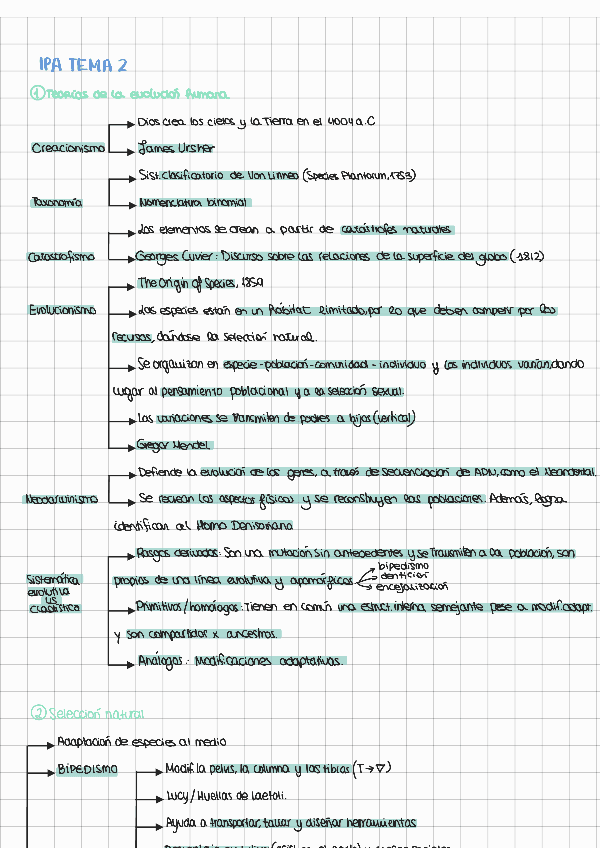 IPA TEMA 2
① Teorías de la evolución humana
Dios crea los cielos y la Tierra en el 4004 a.C
Creacionismo
James Ursher
Sist. clasificatorio de Von Linneo (Species Plantarum, 1753)
Taxonomía
Nomenclatura binomial
Los elementos se crean a partir de catástrofes naturales
Catastrofismo
Georges Cuvier: Discurso sobre las relaciones de la superficie del globo (1812)
The Origin of Species, 1859
Evolucionismo
Las especies están en un hábitat limitado, por lo que deben competir por los
recursos, dándose la selección natural.
Se organizan en especie-población-comunidad-individuo y los individuos varían, dando
lugar al pensamiento poblacional y a la selección sexual.
Las variaciones se transmiten de padres a hijos (vertical)
Gregor Mendel
Defiende la evolución de los genes, a través de secuenciación de ADN, como el Neandertal.
Neodarwinismo
Se recrean los aspectos físicos y se reconstruyen las poblaciones. Además,
identifican al Homo Denisoviano
Rasgos derivados: Son una mutación sin antecedentes y se transmiten a la población, son
propios de una línea evolutiva y apomórficos
bipedismo
dentición
encefalización
Sistemática
evolutiva
vs
cladística
Primitivos/homólogos: Tienen en común una estruct. interna, semejante pese a modif. adapt.
y son compartidos x ancestros.
Análogos: Modificaciones adaptativas.
② Selección natural
Adaptación de especies al medio
BIPEDISMO
Modif. la pelvis, la columna y las tibias (T→▽)
Lucy / Huellas de Laetoli.
Ayuda a transportar, tallar y diseñar herramientas